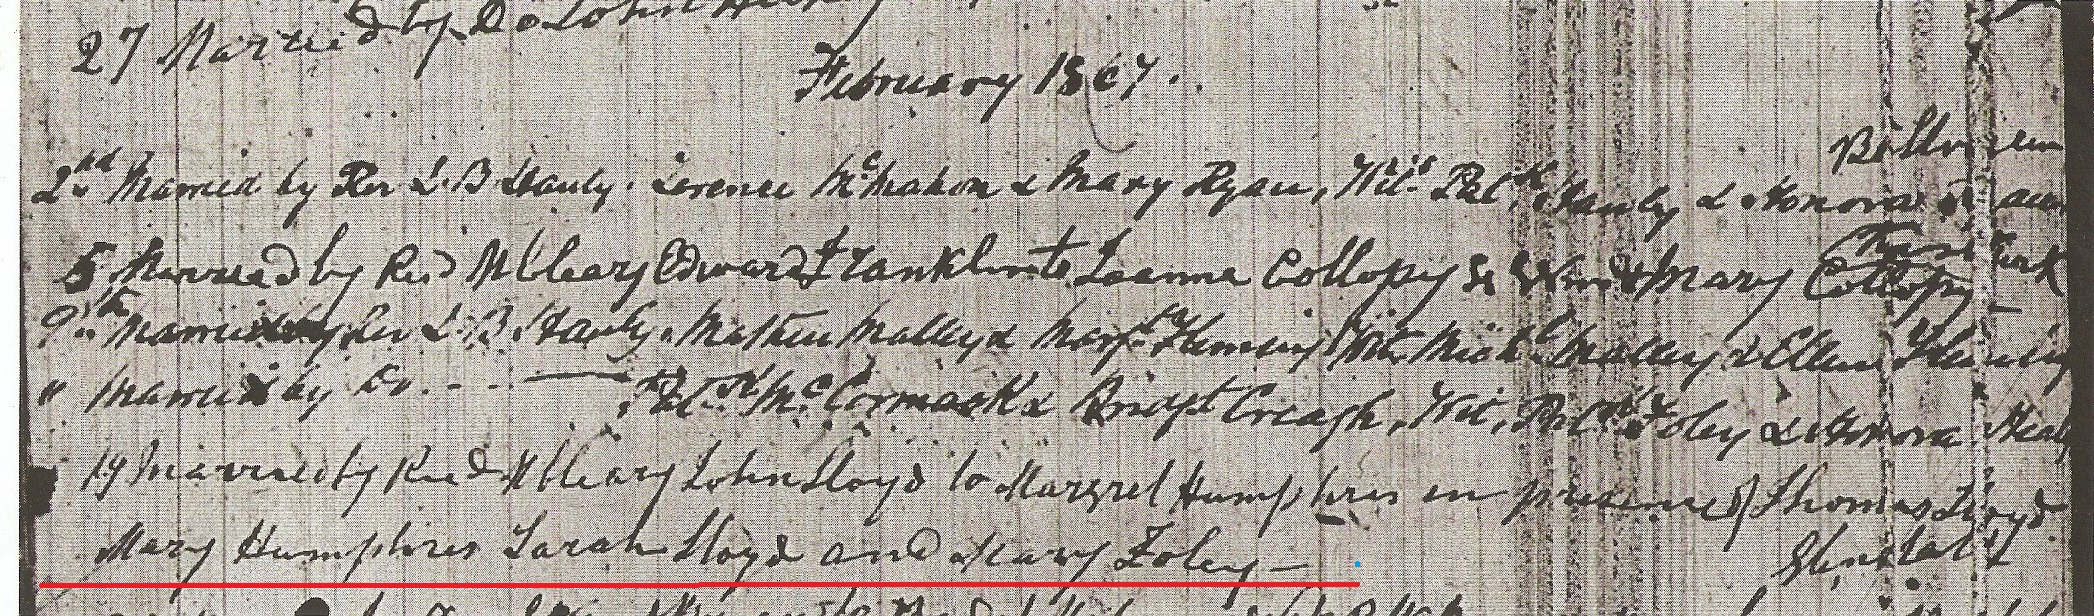 27 Married by Do John
February 1867.
2nd Married by Rev L. B. Hauly. Terence McMahon & Mary Ryan, Wits Patk Hauly & Honora
5 Married by Revd M Cleary Edward Franklin to Joanna Collopy & Mary Collopy
9th Married by Rev L. B. Hauly. Mathew Malley & Margt Fleming Wit. Michl Malley & Ellen Fleming
" Married by Do. - - Patk McCormack & Bridgt Creagh, Wit, Patk Foley & Honora Healy
19 Married by Revd M Cleary John Lloyd to Margret Humphres in presence of Thomas Lloyd
Mary Humphres Sarah Lloyd and Mary Foley – Glenstal